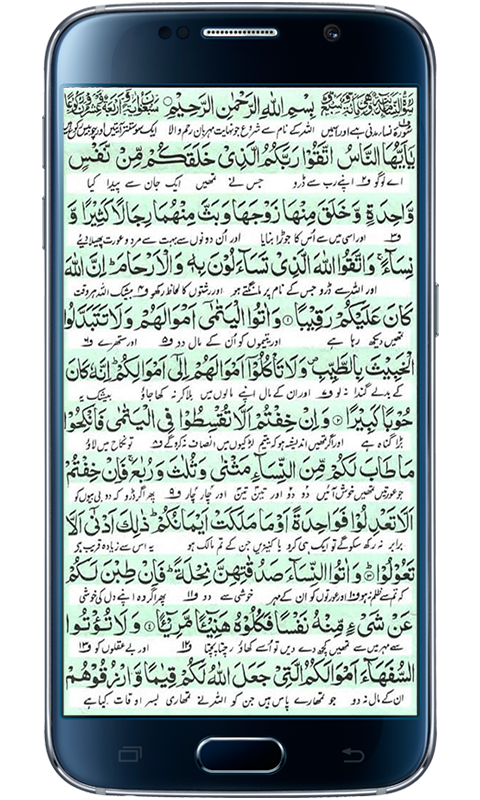 بِسْمِ اللّٰهِ الرَّحْمٰنِ الرَّحِيْمِ
سورۃ نساء مدنی ہے اور اسمیں اللہ کے نام سے شروع جو نہایت مہربان رحم والا ایک سو
يٰۤاَيُّهَا النَّاسُ اتَّقُوْا رَبَّكُمُ الَّذِيْ خَلَقَكُمْ مِّنْ نَّفْسٍ
اے لوگو ف۲ اپنے رب سے ڈرو جس نے تمھیں ایک جان سے پیدا کیا
وَّاحِدَةٍ وَّخَلَقَ مِنْهَا زَوْجَهَا وَبَثَّ مِنْهُمَا رِجَالًا كَثِيْرًا وَّ
ف۳ اور اسی میں سے اُس کا جوڑا بنایا اور اُن دونوں سے بہت سے مرد و عورت پھیلا دیئے
نِسَآءً ۚ وَاتَّقُوا اللّٰهَ الَّذِيْ تَسَآءَلُوْنَ بِهٖ وَالْاَرْحَامَ ؕ اِنَّ اللّٰهَ
اور اللہ سے ڈرو جس کے نام پر مانگتے ہو اور رشتوں کا لحاظ رکھو ف۴ بیشک اللہ ہر وقت
كَانَ عَلَيْكُمْ رَقِيْبًا ۝۱ وَاٰتُوا الْيَتٰمٰۤى اَمْوَالَهُمْ وَلَا تَتَبَدَّلُوا
تمھیں دیکھ رہا ہے اور یتیموں کو اُن کے مال دو ف۵ اور ستھرے ف۶
الْخَبِيْثَ بِالطَّيِّبِ ۪ وَلَا تَاْكُلُوْۤا اَمْوَالَهُمْ اِلٰۤى اَمْوَالِكُمْ ؕ اِنَّهٗ كَانَ
کے بدلے گندا نہ لو ف۷ اور ان کے مال اپنے مالوں میں ملا کر نہ کھا جاؤ بیشک یہ
حُوْبًا كَبِيْرًا ۝۲ وَاِنْ خِفْتُمْ اَلَّا تُقْسِطُوْا فِي الْيَتٰمٰى فَانْكِحُوْا
بڑا گناہ ہے اور اگر تمھیں اندیشہ ہو کہ یتیم لڑکیوں میں انصاف نہ کرو گے ف۸ تو نکاح میں لاؤ
مَا طَابَ لَكُمْ مِّنَ النِّسَآءِ مَثْنٰى وَثُلٰثَ وَرُبٰعَ ۚ فَاِنْ خِفْتُمْ
جو عورتیں تمھیں خوش آئیں دو دو اور تین تین اور چار چار ف۹ پھر اگر ڈرو کہ دو بی بیوں کو
اَلَّا تَعْدِلُوْا فَوَاحِدَةً اَوْ مَا مَلَكَتْ اَيْمَانُكُمْ ؕ ذٰلِكَ اَدْنٰۤى اَلَّا
برابر نہ رکھ سکو گے تو ایک ہی کرو یا کنیزیں جن کے تم مالک ہو یہ اس سے زیادہ قریب ہے
تَعُوْلُوْا ؕ ۝۳ وَاٰتُوا النِّسَآءَ صَدُقٰتِهِنَّ نِحْلَةً ؕ فَاِنْ طِبْنَ لَكُمْ
کہ تم سے ظلم نہ ہو ف۱۰ اور عورتوں کو ان کے مہر خوشی سے دو ف۱۱ پھر اگر وہ اپنے دل کی خوشی
عَنْ شَيْءٍ مِّنْهُ نَفْسًا فَكُلُوْهُ هَنِيْٓئًا مَّرِيْٓئًا ۝۴ وَلَا تُؤْتُوا
سے مہر میں سے تمھیں کچھ دے دیں تو اُسے کھاؤ رچتا پچتا ف۱۲ اور بے عقلوں کو ف۱۳
السُّفَهَآءَ اَمْوَالَكُمُ الَّتِيْ جَعَلَ اللّٰهُ لَكُمْ قِيٰمًا وَّارْزُقُوْهُمْ
ان کے مال نہ دو جو تمھارے پاس ہیں جن کو اللہ نے تمھاری بسر اوقات کیا ہے